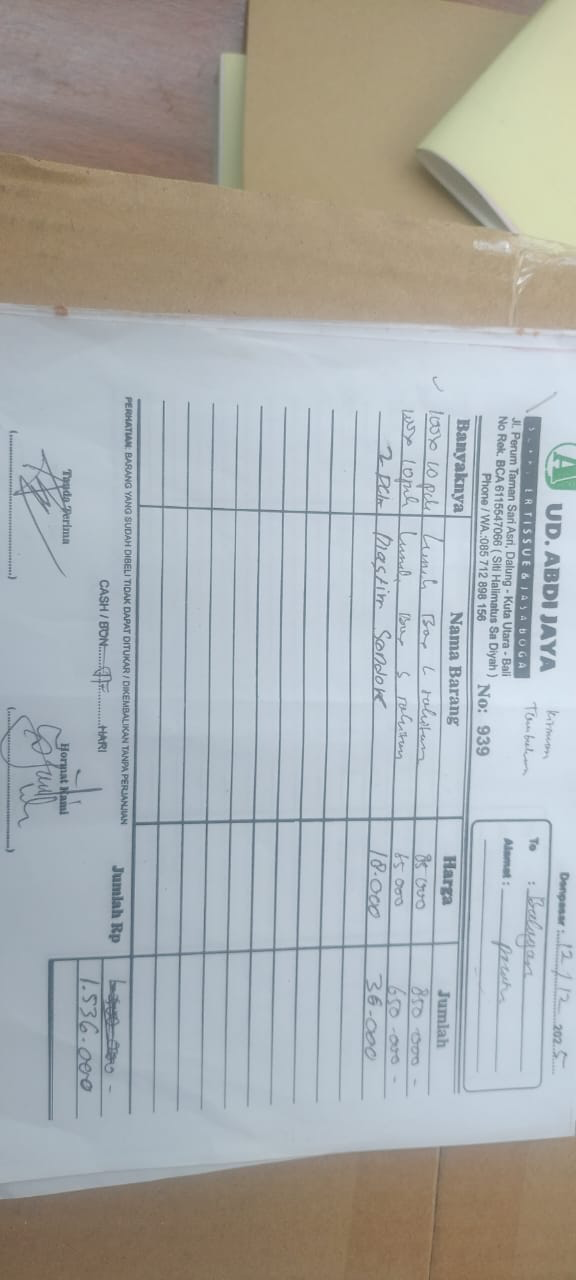 UD. ABDI JAYA
SUPPLIER TISSUE & JASA BOGA
Jl. Perum Taman Sari Asri, Dalung - Kuta Utara - Bali
No Rek. BCA 6115547066 ( Siti Halimatus Sa Diyah )
Phone / WA.:085 712 898 156
No: 939
Kiriman
Tambahan
Denpasar : 12/12 2025
To :
Alamat :
Banyaknya Nama Barang Harga Jumlah
10 pak Lunch Box L 85 000 850 000 -
10 pak Lunch Box S 65 000 650 -000 -
2 Plastik Sendok 18.000 36.000
Jumlah Rp
1.536.000
PERHATIAN: BARANG YANG SUDAH DIBELI TIDAK DAPAT DITUKAR / DIKEMBALIKAN TANPA PERJANJIAN
CASH / BON HARI
Tanda Terima Hormat Kami